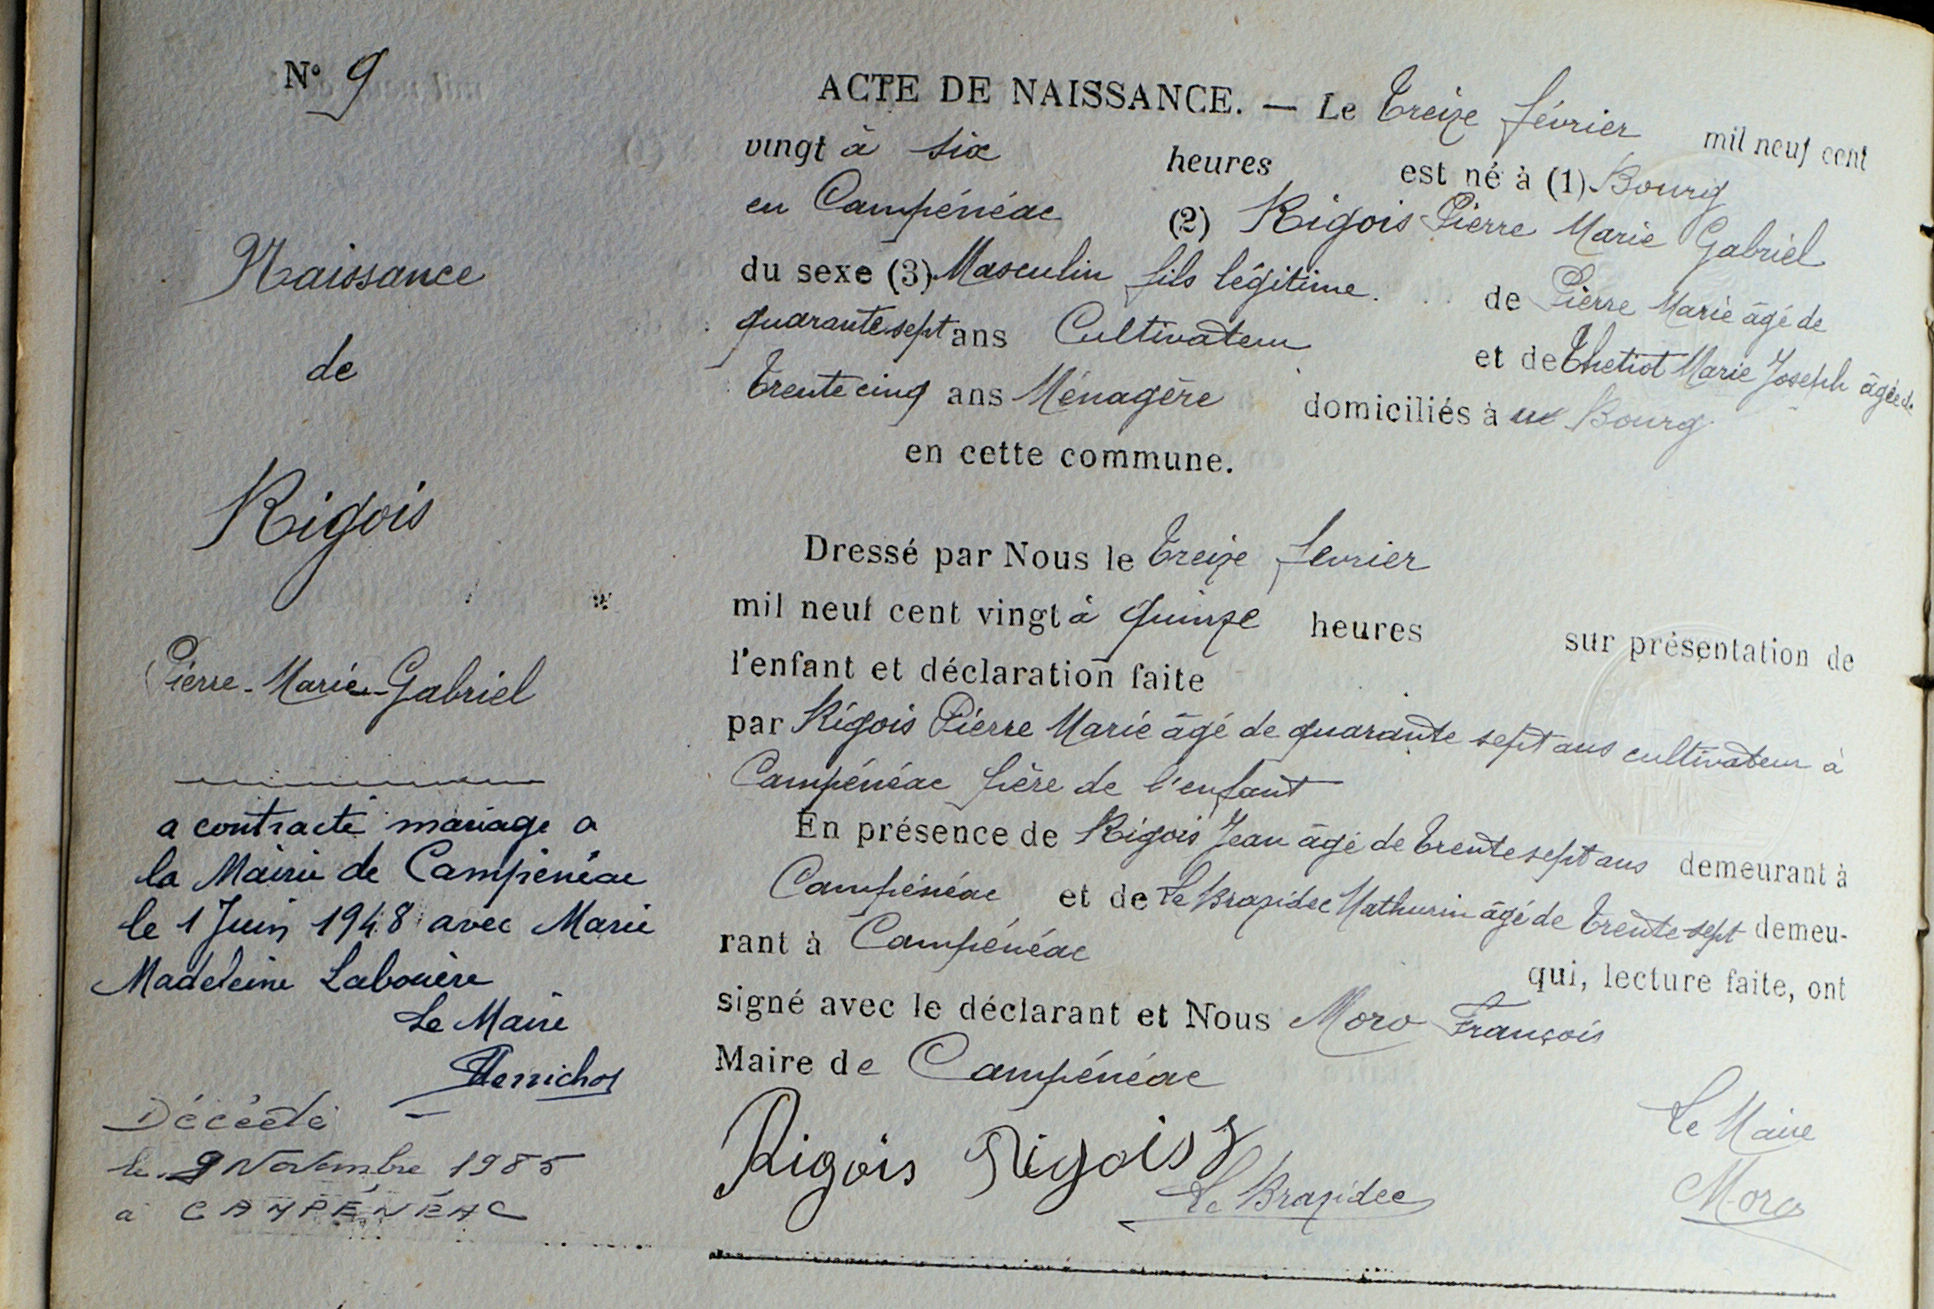 N° 9
Naissance
de
Rigois
Pierre-Marie-Gabriel
a contracté mariage a
la Mairie de Campénéac
le 1 Juin 1948 avec Marie
Madeleine Labouère
Le Maire
Décédé
le 9 Novembre 1985
à CAMPÉNÉAC
ACTE DE NAISSANCE. — Le treize février mil neuf cent
vingt à six heures est né à (1) Bourg
en Campénéac (2) Rigois Pierre Marie Gabriel
du sexe (3) Masculin fils légitime. de Pierre Marie âgé de
quarante sept ans Cultivateur et de Thetiot Marie Joseph âgée de
trente cinq ans Ménagère domiciliés à au Bourg
en cette commune.
Dressé par Nous le treize fevrier
mil neuf cent vingt à quinze heures sur présentation de
l'enfant et déclaration faite
par Rigois Pierre Marie âgé de quarante sept ans cultivateur à
Campénéac père de l'enfant
En présence de Rigois Jean âgé de trente sept ans demeurant à
Campénéac et de Le Brazidec Mathurin âgé de trente-sept demeu-
rant à Campénéac qui, lecture faite, ont
signé avec le déclarant et Nous Moro François
Maire de Campénéac
Rigois Rigois
Le Brazidec
Le Maire
Moro